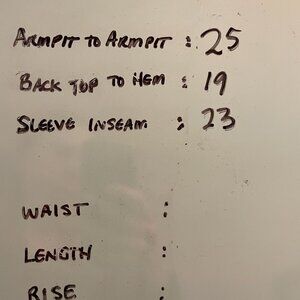 ARMPIT TO ARMPIT : 25
BACK TOP TO HEM : 19
SLEEVE INSEAM : 23
WAIST :
LENGTH :
RISE